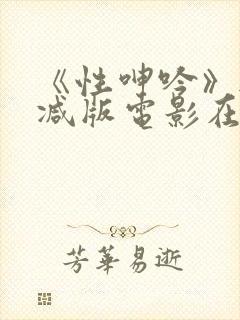 《性呻吟》
减版电影在
芳华易逝